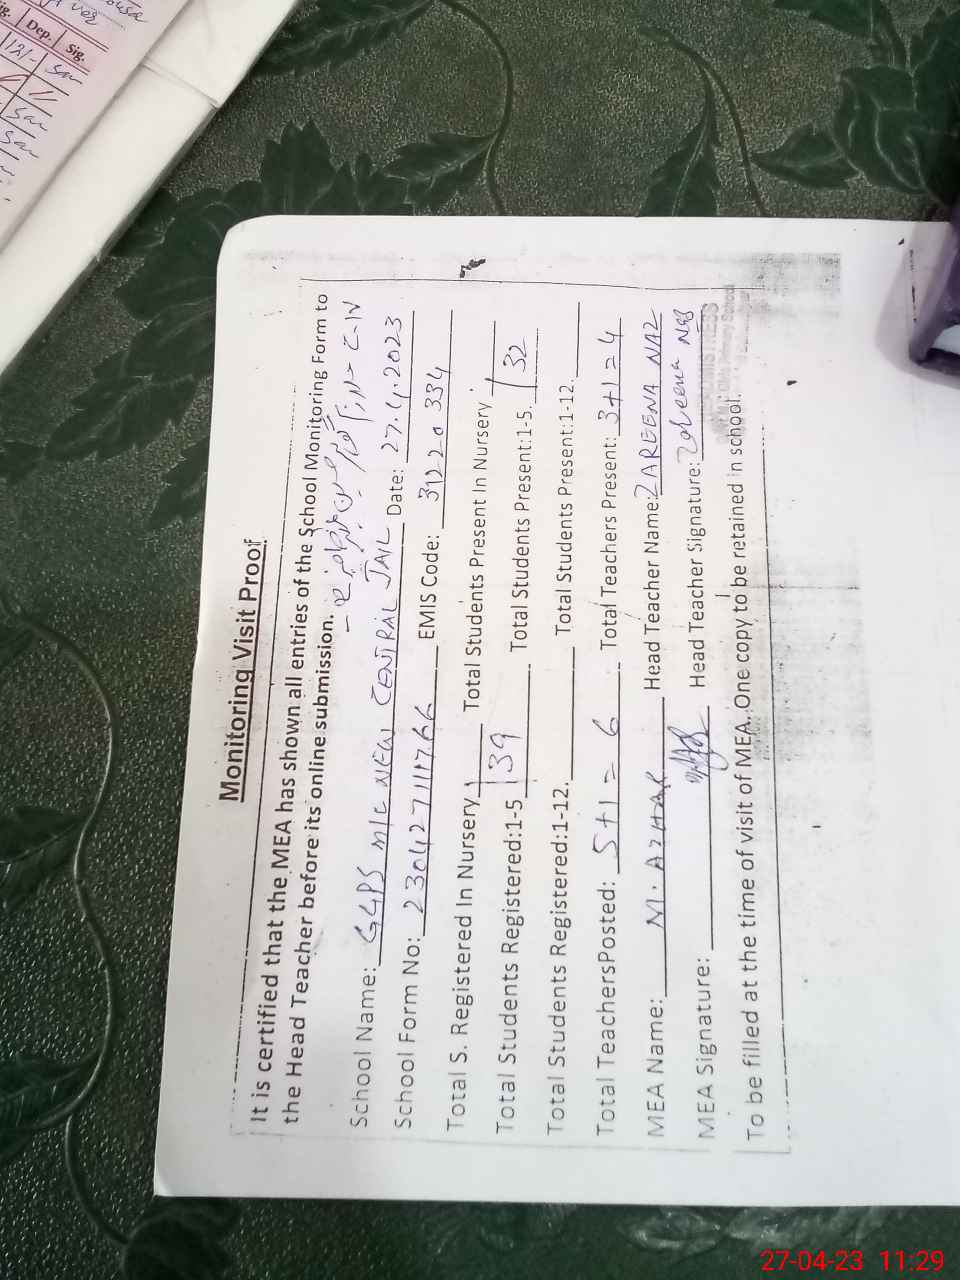 Monitoring Visit Proof.
It is certified that the MEA has shown all entries of the School Monitoring Form to
the Head Teacher before its online submission.
School Name: GGPS M/C NEW CENTRAL JAIL
School Form No: 230427111766 Date: 27.4.2023
EMIS Code: 31220334
Total S. Registered In Nursery Total Students Present In Nursery
Total Students Registered:1-5 139 Total Students Present:1-5. 132
Total Students Registered:1-12. Total Students Present:1-12.
Total TeachersPosted: 5+1 = 6 Total Teachers Present: 3+1=4
MEA Name: M. AZHAR Head Teacher Name: ZAREENA NAZ
MEA Signature: Head Teacher Signature: Zareena Naz
To be filled at the time of visit of MEA. One copy to be retained in school.
Dep. Sig.
27-04-23 11:29